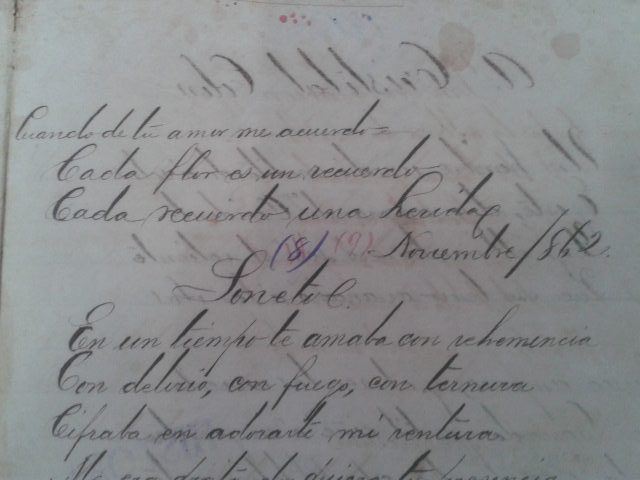 Cuando de tu amor me acuerdo=
Cada flor es un recuerdo
Cada recuerdo una herida
(8) (9) Noviembre /862.
Soneto C.
En un tiempo te amaba con vehemencia
Con delirio, con fuego, con ternura
Cifraba en adorarte mi ventura
Me era grata de